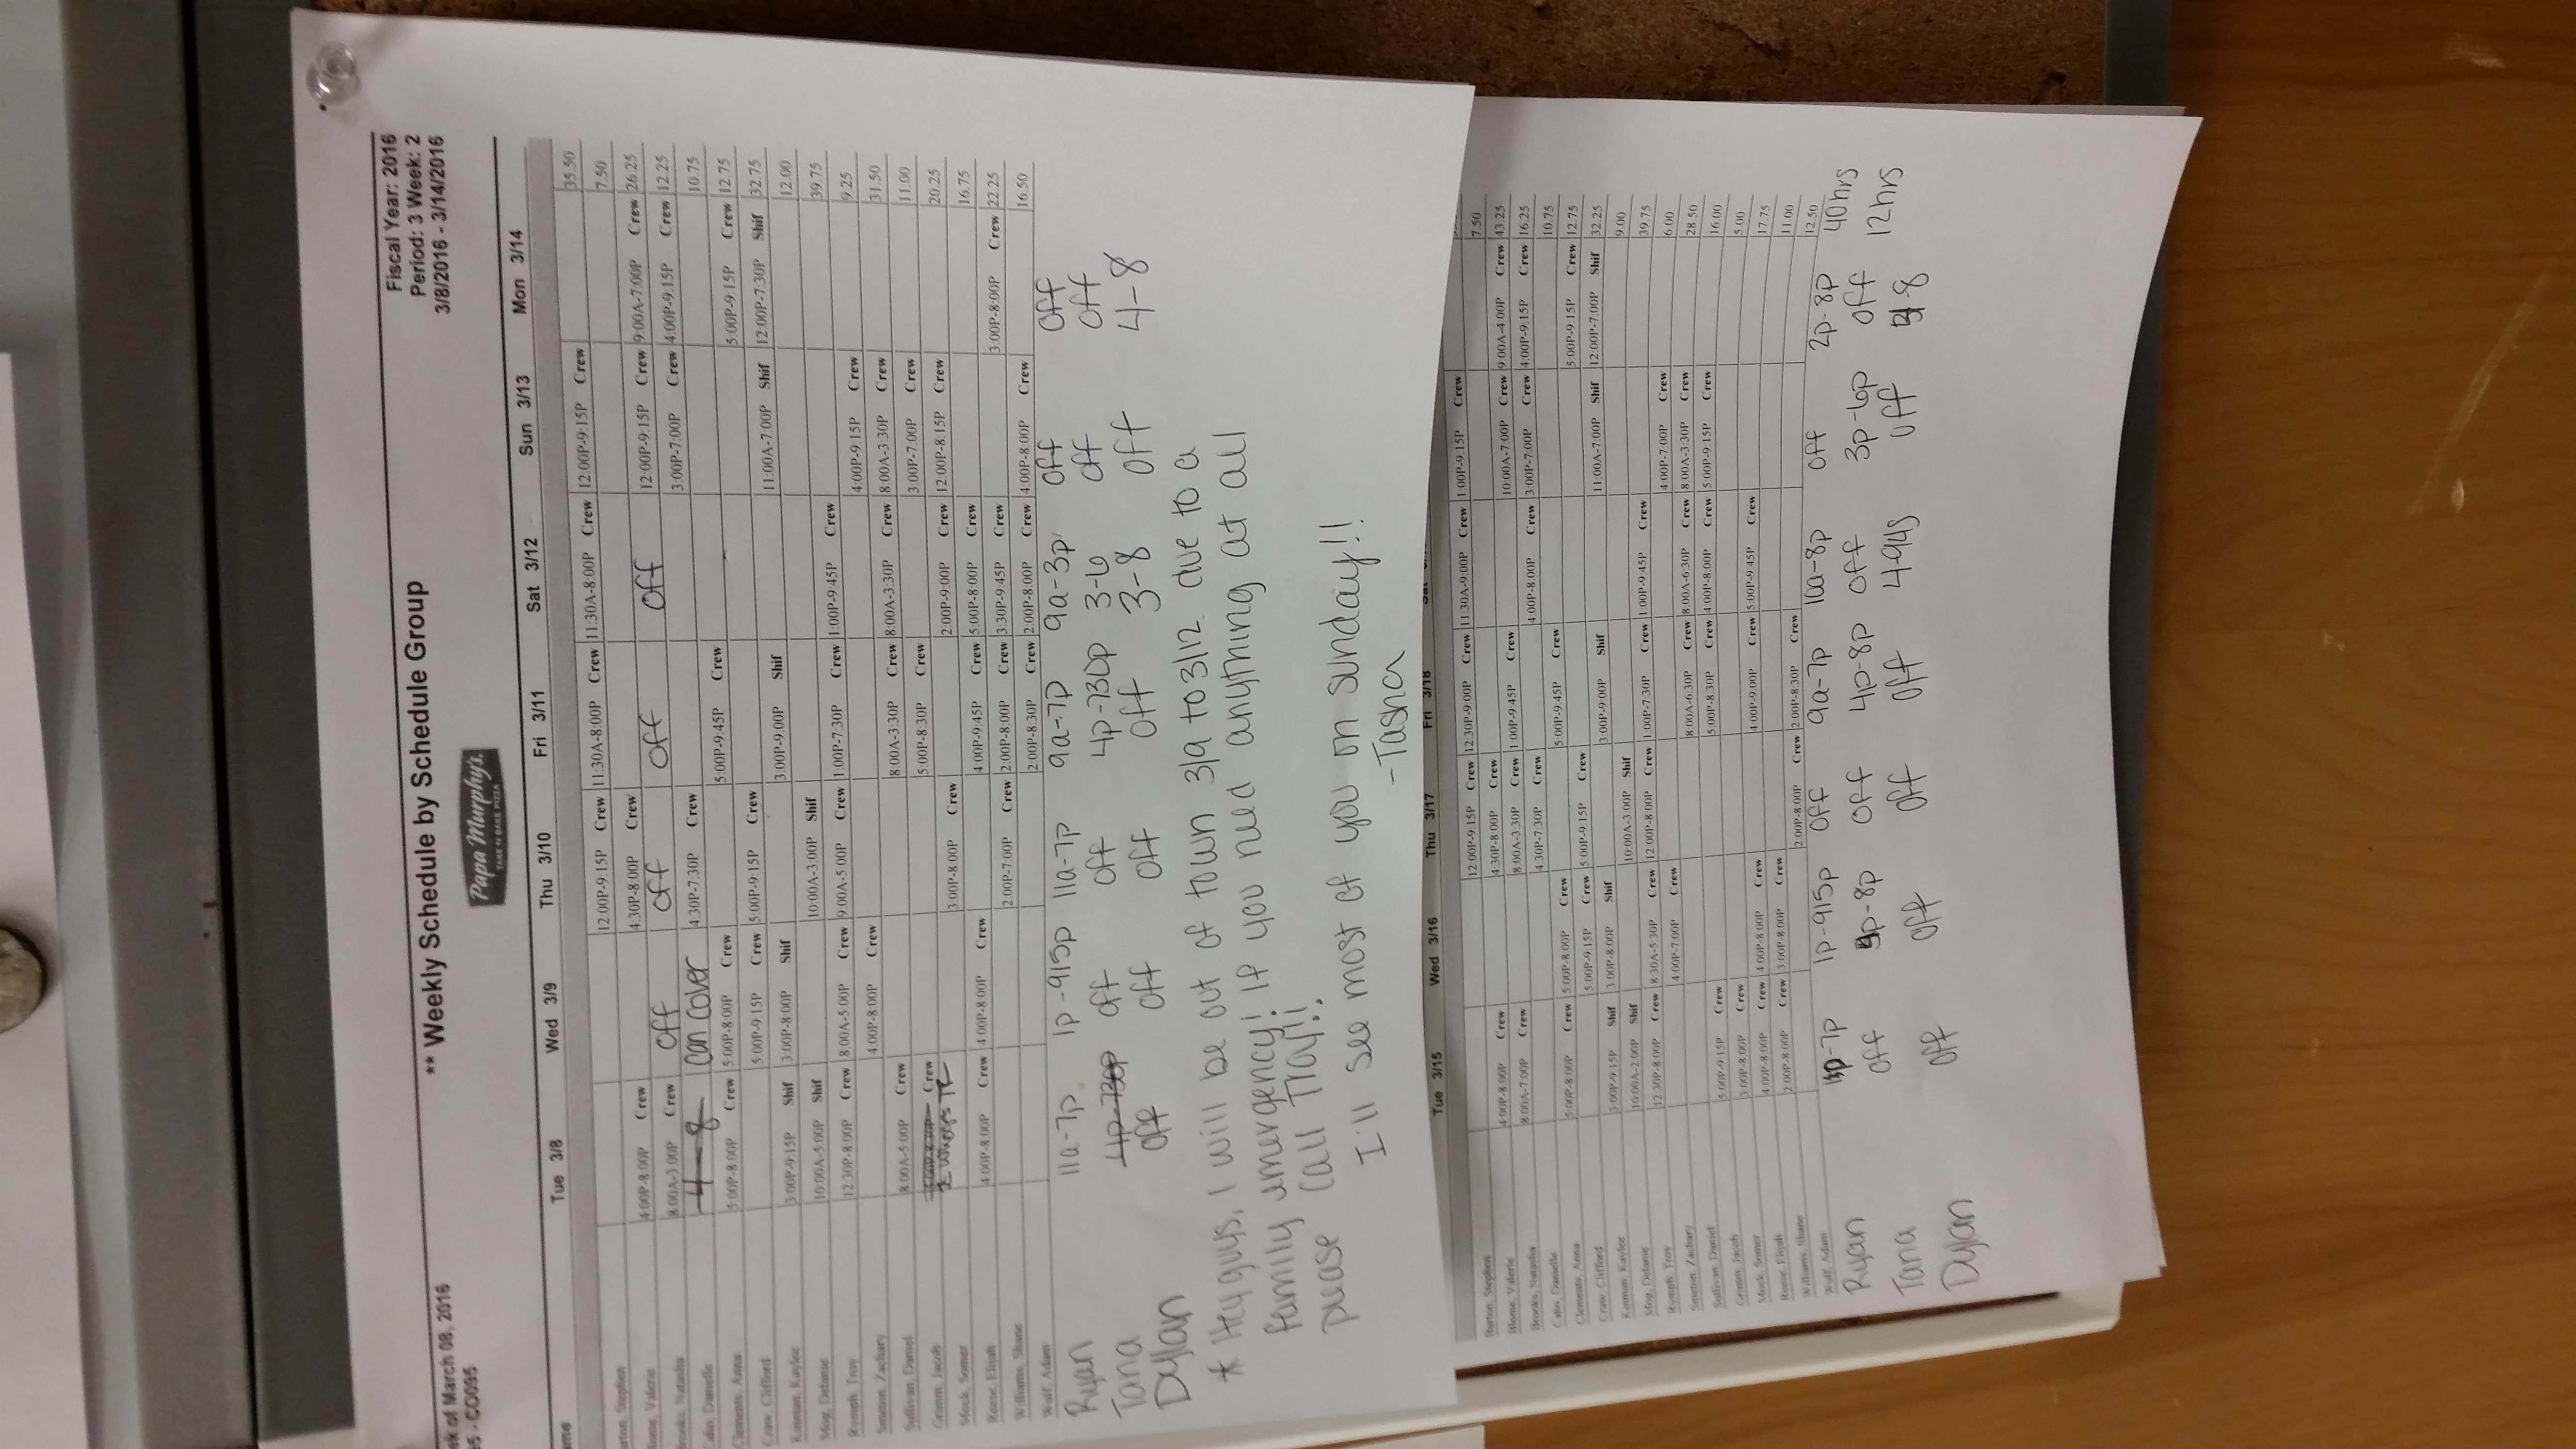 ** Weekly Schedule by Schedule Group
Fiscal Year: 2016
Period: 3 Week: 2
3/8/2016 - 3/14/2016
ek of March 08, 2016
- CO095
Papa Murphy's.
TAKE 'N' BAKE PIZZA
ame Tue 3/8 Wed 3/9 Thu 3/10 Fri 3/11 Sat 3/12 Sun 3/13 Mon 3/14
Stephen 12:00P-9:15P Crew 11:30A-8:00P Crew 11:30A-8:00P Crew 12:00P-9:15P Crew 35.50
Valerie 4:00P-8:00P Crew 4:30P-8:00P Crew 7.50
Natasha 8:00A-3:00P Crew Off Off Off Off 12:00P-9:15P Crew 9:00A-7:00P Crew 26.25
Danielle 4-8 can cover 4:30P-7:30P Crew 3:00P-7:00P Crew 4:00P-9:15P Crew 12.25
Clements, Anna 5:00P-8:00P Crew 5:00P-8:00P Crew 5:00P-9:45P Crew 10.75
Craw, Clifford 5:00P-9:15P Crew 5:00P-9:15P Crew 5:00P-9:15P Crew 12.75
Kinman, Kaylee 3:00P-9:15P Shif 3:00P-8:00P Shif 3:00P-9:00P Shif 11:00A-7:00P Shif 12:00P-7:30P Shif 32.75
10:00A-5:00P Shif 10:00A-3:00P Shif 12.00
Rumph, Troy 12:30P-8:00P Crew 8:00A-5:00P Crew 9:00A-5:00P Crew 1:00P-7:30P Crew 1:00P-9:45P Crew 39.75
Zachary 4:00P-8:00P Crew 4:00P-9:15P Crew 9.25
Sullivan, Daniel 8:00A-5:00P Crew 8:00A-3:30P Crew 8:00A-3:30P Crew 8:00A-3:30P Crew 31.50
Grimm, Jacob Crew 5:00P-8:30P Crew 3:00P-7:00P Crew 11.00
Mock, Somer 3:00P-8:00P Crew 2:00P-9:00P Crew 12:00P-8:15P Crew 20.25
Reese, Elijah 4:00P-8:00P Crew 4:00P-8:00P Crew 4:00P-9:45P Crew 5:00P-8:00P Crew 16.75
Williams, Shane 2:00P-7:00P Crew 2:00P-8:00P Crew 3:30P-9:45P Crew 3:00P-8:00P Crew 22.25
Wulf, Adam 2:00P-8:30P Crew 2:00P-8:00P Crew 4:00P-8:00P Crew 16.50
Ryan 11a-7p 1p-915p 11a-7p 9a-7p 9a-3p Off Off
Tana 4p-730p Off Off 4p-730p 3-6 Off Off
Dylan Off Off Off Off 3-8 Off 4-8
* Hey guys, I will be out of town 3/9 to 3/12 due to a
family emergency! If you need anything at all
please call Troy!!
I'll see most of you on sunday!!
-Tasha
Tue 3/15 Wed 3/16 Thu 3/17 Fri 3/18
Stephen 12:00P-9:15P Crew 12:30P-9:00P Crew 11:30A-9:00P Crew 1:00P-9:15P Crew
Valerie 4:00P-8:00P Crew 4:30P-8:00P Crew 7.50
Natasha 8:00A-7:00P Crew 8:00A-3:30P Crew 1:00P-9:45P Crew 10:00A-7:00P Crew 9:00A-4:00P Crew 43.25
Danielle 4:30P-7:30P Crew 4:00P-8:00P Crew 3:00P-7:00P Crew 4:00P-9:15P Crew 16.25
Clements, Anna 5:00P-8:00P Crew 5:00P-8:00P Crew 5:00P-9:45P Crew 10.75
Craw, Clifford 5:00P-9:15P Crew 5:00P-9:15P Crew 5:00P-9:15P Crew 12.75
Kinman, Kaylee 3:00P-9:15P Shif 3:00P-8:00P Shif 3:00P-9:00P Shif 11:00A-7:00P Shif 12:00P-7:00P Shif 32.25
10:00A-2:00P Shif 10:00A-3:00P Shif 9.00
Rumph, Troy 12:30P-8:00P Crew 8:30A-5:30P Crew 12:00P-8:00P Crew 1:00P-7:30P Crew 1:00P-9:45P Crew 39.75
Zachary 4:00P-7:00P Crew 4:00P-7:00P Crew 6.00
Sullivan, Daniel 8:00A-6:30P Crew 8:00A-6:30P Crew 8:00A-3:30P Crew 28.50
Grimm, Jacob 5:00P-9:15P Crew 5:00P-8:30P Crew 4:00P-8:00P Crew 5:00P-9:15P Crew 16.00
Mock, Somer 3:00P-8:00P Crew 5.00
Reese, Elijah 4:00P-8:00P Crew 4:00P-8:00P Crew 4:00P-9:00P Crew 5:00P-9:45P Crew 17.75
Williams, Shane 2:00P-8:00P Crew 3:00P-8:00P Crew 11.00
Wulf, Adam 2:00P-8:00P Crew 2:00P-8:30P Crew 12.50
Ryan 1p-7p 1p-915p Off 9a-7p 10a-8p Off 2p-8p 40hrs
Tana Off 4p-8p Off 4p-8p Off 3p-6p Off 12hrs
Dylan Off Off Off Off 4-945 Off 4-8